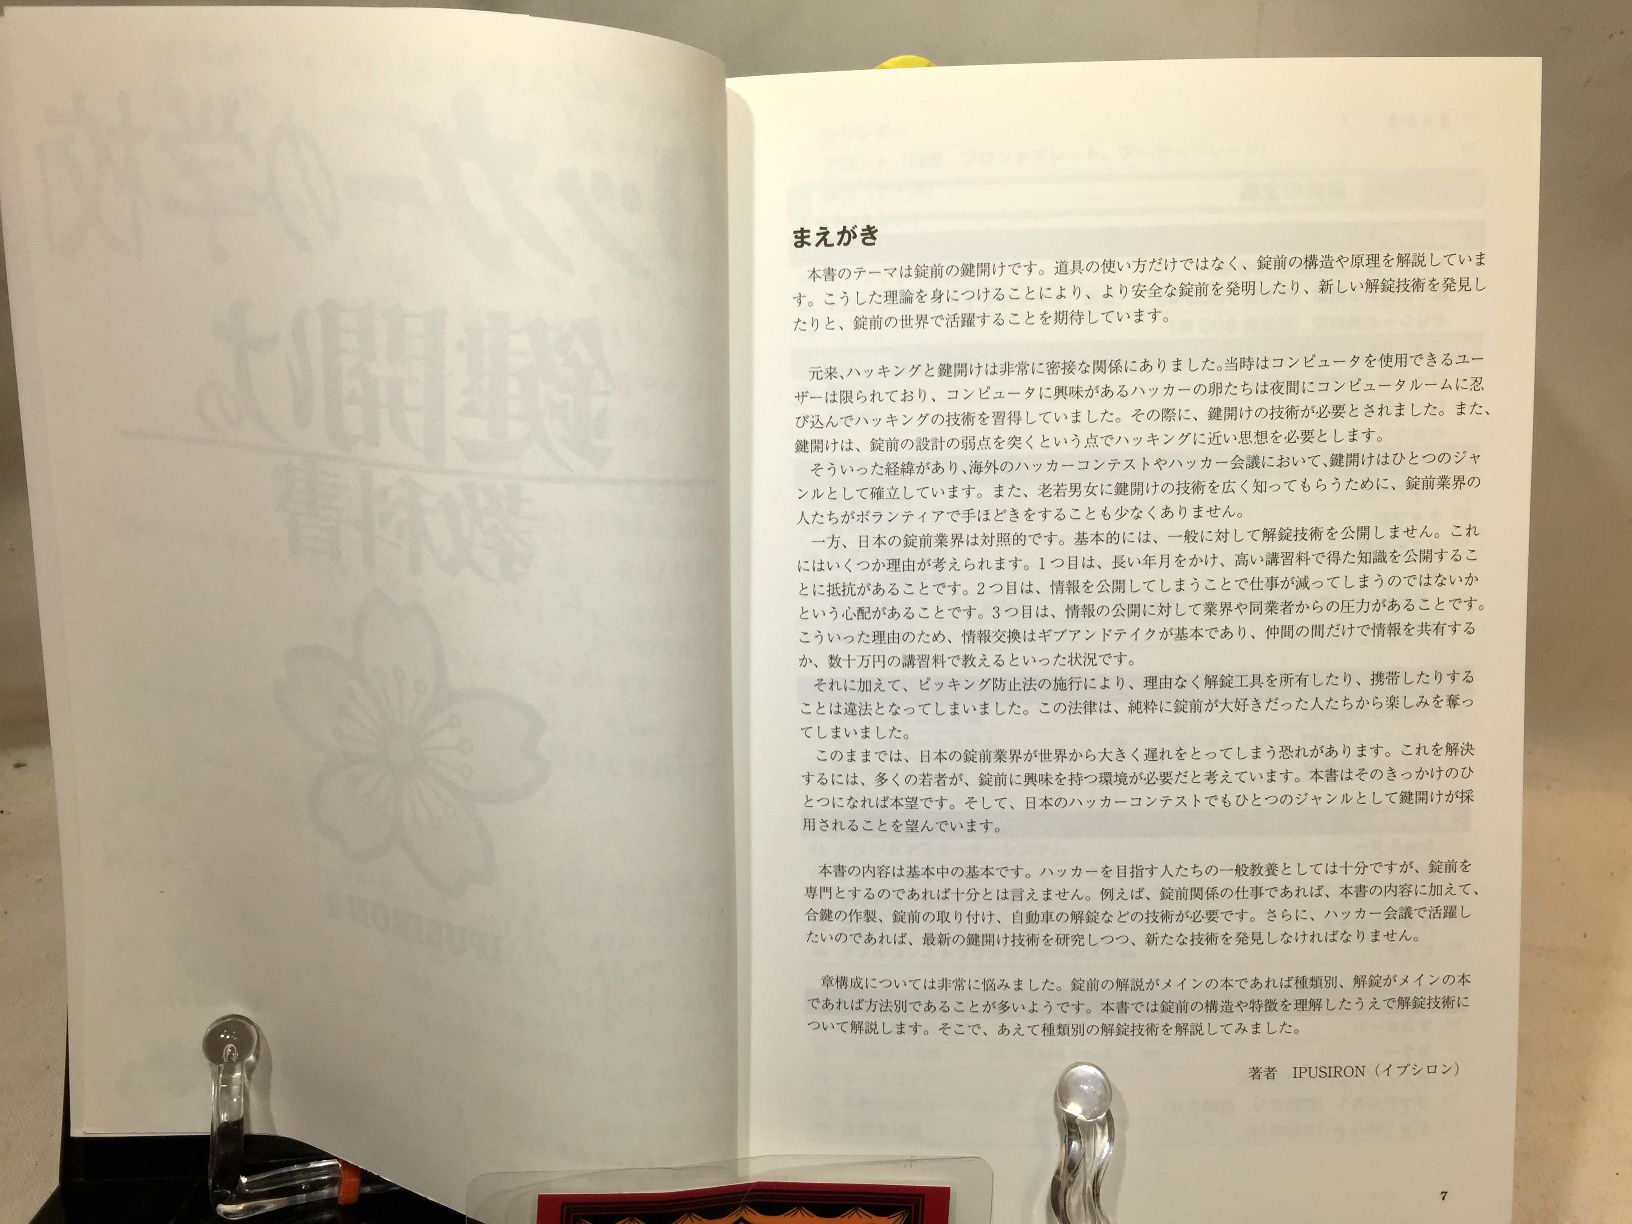 まえがき
本書のテーマは錠前の鍵開けです。道具の使い方だけではなく、錠前の構造や原理を解説していま
す。こうした理論を身につけることにより、より安全な錠前を発明したり、新しい解錠技術を発見し
たりと、錠前の世界で活躍することを期待しています。
元来、ハッキングと鍵開けは非常に密接な関係にありました。当時はコンピュータを使用できるユー
ザーは限られており、コンピュータに興味があるハッカーの卵たちは夜間にコンピュータルームに忍
び込んでハッキングの技術を習得していました。その際に、鍵開けの技術が必要とされました。また、
鍵開けは、錠前の設計の弱点を突くという点でハッキングに近い思想を必要とします。
そういった経緯があり、海外のハッカーコンテストやハッカー会議において、鍵開けはひとつのジャ
ンルとして確立しています。また、老若男女に鍵開けの技術を広く知ってもらうために、錠前業界の
人たちがボランティアで手ほどきをすることも少なくありません。
一方、日本の錠前業界は対照的です。基本的には、一般に対して解錠技術を公開しません。これ
にはいくつか理由が考えられます。1つ目は、長い年月をかけ、高い講習料で得た知識を公開するこ
とに抵抗があることです。2つ目は、情報を公開してしまうことで仕事が減ってしまうのではないか
という心配があることです。3つ目は、情報の公開に対して業界や同業者からの圧力があることです。
こういった理由のため、情報交換はギブアンドテイクが基本であり、仲間の間だけで情報を共有する
か、数十万円の講習料で教えるといった状況です。
それに加えて、ピッキング防止法の施行により、理由なく解錠工具を所有したり、携帯したりする
ことは違法となってしまいました。この法律は、純粋に錠前が大好きだった人たちから楽しみを奪っ
てしまいました。
このままでは、日本の錠前業界が世界から大きく遅れをとってしまう恐れがあります。これを解決
するには、多くの若者が、錠前に興味を持つ環境が必要だと考えています。本書はそのきっかけのひ
とつになれば本望です。そして、日本のハッカーコンテストでもひとつのジャンルとして鍵開けが採
用されることを望んでいます。
本書の内容は基本中の基本です。ハッカーを目指す人たちの一般教養としては十分ですが、錠前を
専門とするのであれば十分とは言えません。例えば、錠前関係の仕事であれば、本書の内容に加えて、
合鍵の作製、錠前の取り付け、自動車の解錠などの技術が必要です。さらに、ハッカー会議で活躍し
たいのであれば、最新の鍵開け技術を研究しつつ、新たな技術を発見しなければなりません。
章構成については非常に悩みました。錠前の解説がメインの本であれば種類別、解錠がメインの本
であれば方法別であることが多いようです。本書では錠前の構造や特徴を理解したうえで解錠技術に
ついて解説します。そこで、あえて種類別の解錠技術を解説してみました。
著者　IPUSIRON（イプシロン）
7